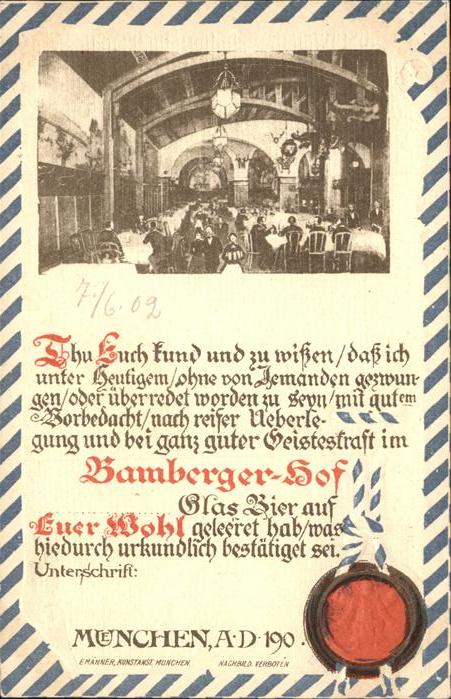 7./6. 02
Thu Euch kund und zu wißen/daß ich
unter Heutigem/ohne von Jemanden gezwun-
gen/oder überredet worden zu seyn/mit gutem
Vorbedacht/nach reifer Ueberle-
gung und bei ganz guter Geisteskraft im
Bamberger-Hof
Glas Bier auf
Euer Wohl geleeret hab/was
hiedurch urkundlich bestätiget sei.
Unterschrift:
MŒNCHEN, A·D·190 .
E.MANNER, KUNSTANST. MÜNCHEN. NACHBILD. VERBOTEN